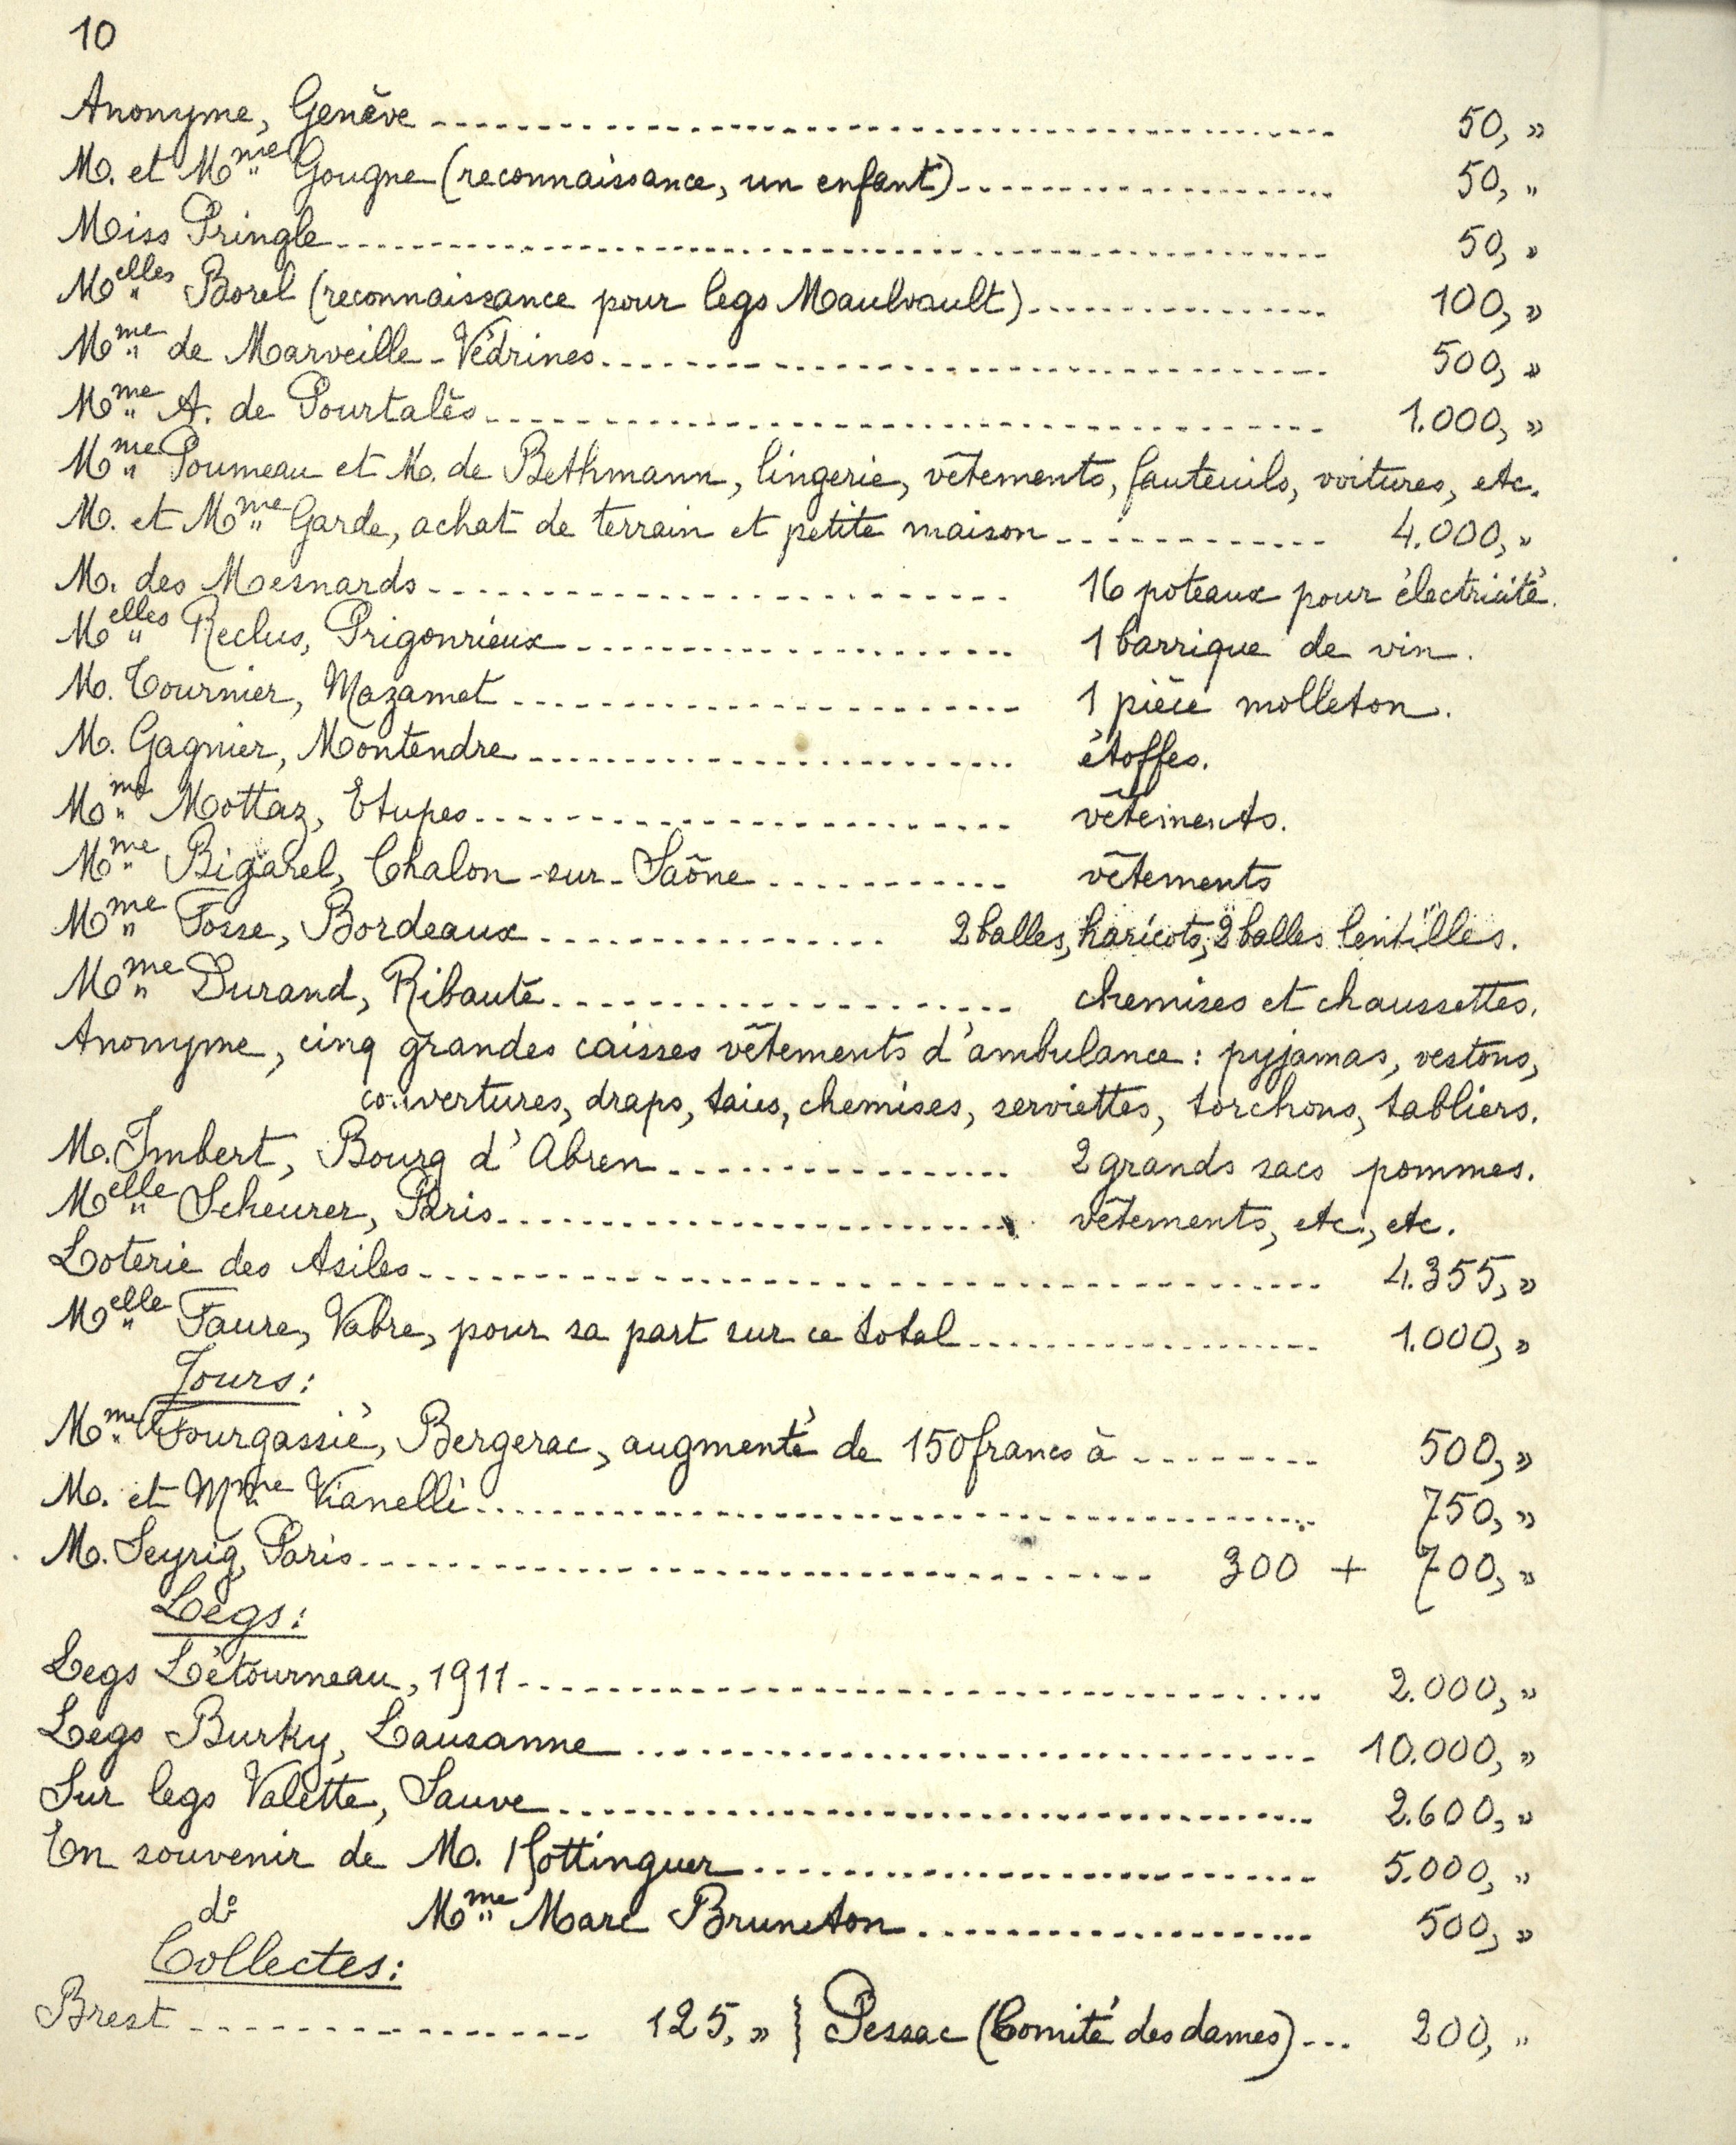 10
Anonyme, Genève ........ 50, »
M. et Mme Gougne (reconnaissance, un enfant) ........ 50, »
Miss Pringle ........ 50, »
Melles Borel (reconnaissance pour legs Maulvault) ........ 100, »
Mme de Marveille-Védrines ........ 500, »
Mme A. de Pourtalès ........ 1.000, »
Mme Poumeau et M. de Bethmann, lingerie, vêtements, fauteuils, voitures, etc.
M. et Mme Garde, achat de terrain et petite maison ........ 4.000, »
M. des Mesnards ........ 16 poteaux pour électricité.
Melles Reclus, Prigonrieux ........ 1 barrique de vin.
M. Tournier, Mazamet ........ 1 pièce molleton.
M. Gagnier, Montendre ........ étoffes.
Mme Mottaz, Etupes ........ vêtements.
Mme Bigarel, Chalon-sur-Saône ........ vêtements
Mme Fosse, Bordeaux ........ 2 balles, haricots, 2 balles lentilles.
Mme Durand, Ribaute ........ chemises et chaussettes.
Anonyme, cinq grandes caisses vêtements d'ambulance : pyjamas, vestons,
couvertures, draps, taies, chemises, serviettes, torchons, tabliers.
M. Imbert, Bourg d'Abren ........ 2 grands sacs pommes.
Melle Scheurer, Paris ........ vêtements, etc., etc.
Loterie des Asiles ........ 4.355, »
Melle Faure, Vabre, pour sa part sur ce total ........ 1.000, »
Jours :
Mme Fourgassié, Bergerac, augmenté de 150 francs à ........ 500, »
M. et Mme Vianelli ........ 750, »
M. Seyrig, Paris ........ 300 + 700, »
Legs :
Legs Létourneau, 1911 ........ 2.000, »
Legs Burky, Lausanne ........ 10.000, »
Sur legs Valette, Sauve ........ 2.600, »
En souvenir de M. Hottinguer ........ 5.000, »
do Mme Marc Bruneton ........ 500, »
Collectes :
Brest ........ 125, » } Pessac (Comité des dames) ... 200, »